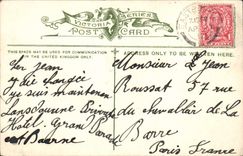 VICTORIA SERIES
POST CARD
THIS SPACE MAY BE USED FOR COMMUNICATION
IN THE UNITED KINGDOM ONLY.
ADDRESS ONLY TO BE WRITTEN HERE.
Cer Jean
J'ai changé
J'y suis maintenant
Lansdowne
Hotel Grand Parade
Monsieur Jean
Roussat 57 rue
du chevallier de La
Barre
Paris France